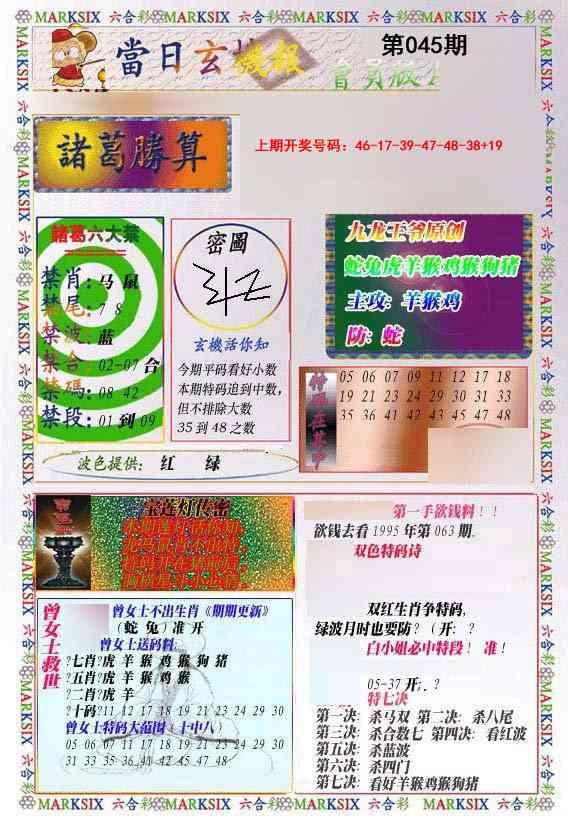 MARKSIX 六合彩 MARKSIX 六合彩 MARKSIX 六合彩 MARKSIX 六合彩 MARKSIX
當日玄機報
第045期
諸葛勝算
上期开奖号码：46-17-39-47-48-38+19
諸葛六大禁
禁肖：马 鼠
禁尾：7 8
禁波：蓝
禁合：02-07 合
禁碼：08 42
禁段：01 到 09
密圖
玄機活你知
今期平码看好小数
本期特码追到中数，
但不排除大数
35 到 48 之数
九龙王爷原创
蛇兔虎羊猴鸡猴狗猪
主攻：羊猴鸡
防：蛇
特码在其中
05 06 07 09 11 12 17 18
19 21 23 24 29 30 31 33
35 36 41 42 43 45 47 48
波色提供：红 绿
宝莲灯传密
曾女士救世
曾女士不出生肖《期期更新》
（蛇 兔）准 开
曾女士送码料：
?七肖?虎 羊 猴 鸡 猴 狗 猪
?五肖?虎 羊 猴 鸡 猴
?二肖?虎 羊
?十码?11 12 17 18 19 21 23 24 29 30
曾女士特码大范围（十中八）
05 06 07 11 12 17 18 19 21 23 24 29 30
31 33 35 36 41 42 45 47 48
第一手欲钱料！！
欲钱去看 1995 年第 063 期.
双色特码诗
双红生肖争特码，
绿波月时也要防？（开：？
白小姐必中特段！ 准！
05-37 开：.？
特七决
第一决：杀马双 第二决：杀八尾
第三决：杀合数七 第四决：看红波
第五决：杀蓝波
第六决：杀四门
第七决：看好羊猴鸡猴狗猪
MARKSIX 六合彩 MARKSIX 六合彩 MARKSIX 六合彩 MARKSIX 六合彩 MARKSIX